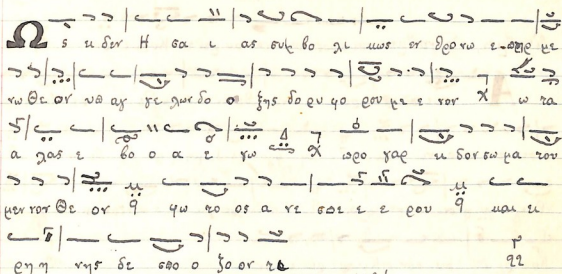 Ως ει δεν Η σα ι ας συμ βο λι κως εν θρο νω ε πηρ με
νω Θε ον υπ αγ γε λων δο ο ξης δο ρυ φο ρου με ε νον ω τα
α λας ε βο ο α ε γω προ γαρ ει δον σω μα του
με νον Θε ον φω το ος α νε σπε ε ε ρου και ει
ρη η νης δε σπο ο ζο ον τα